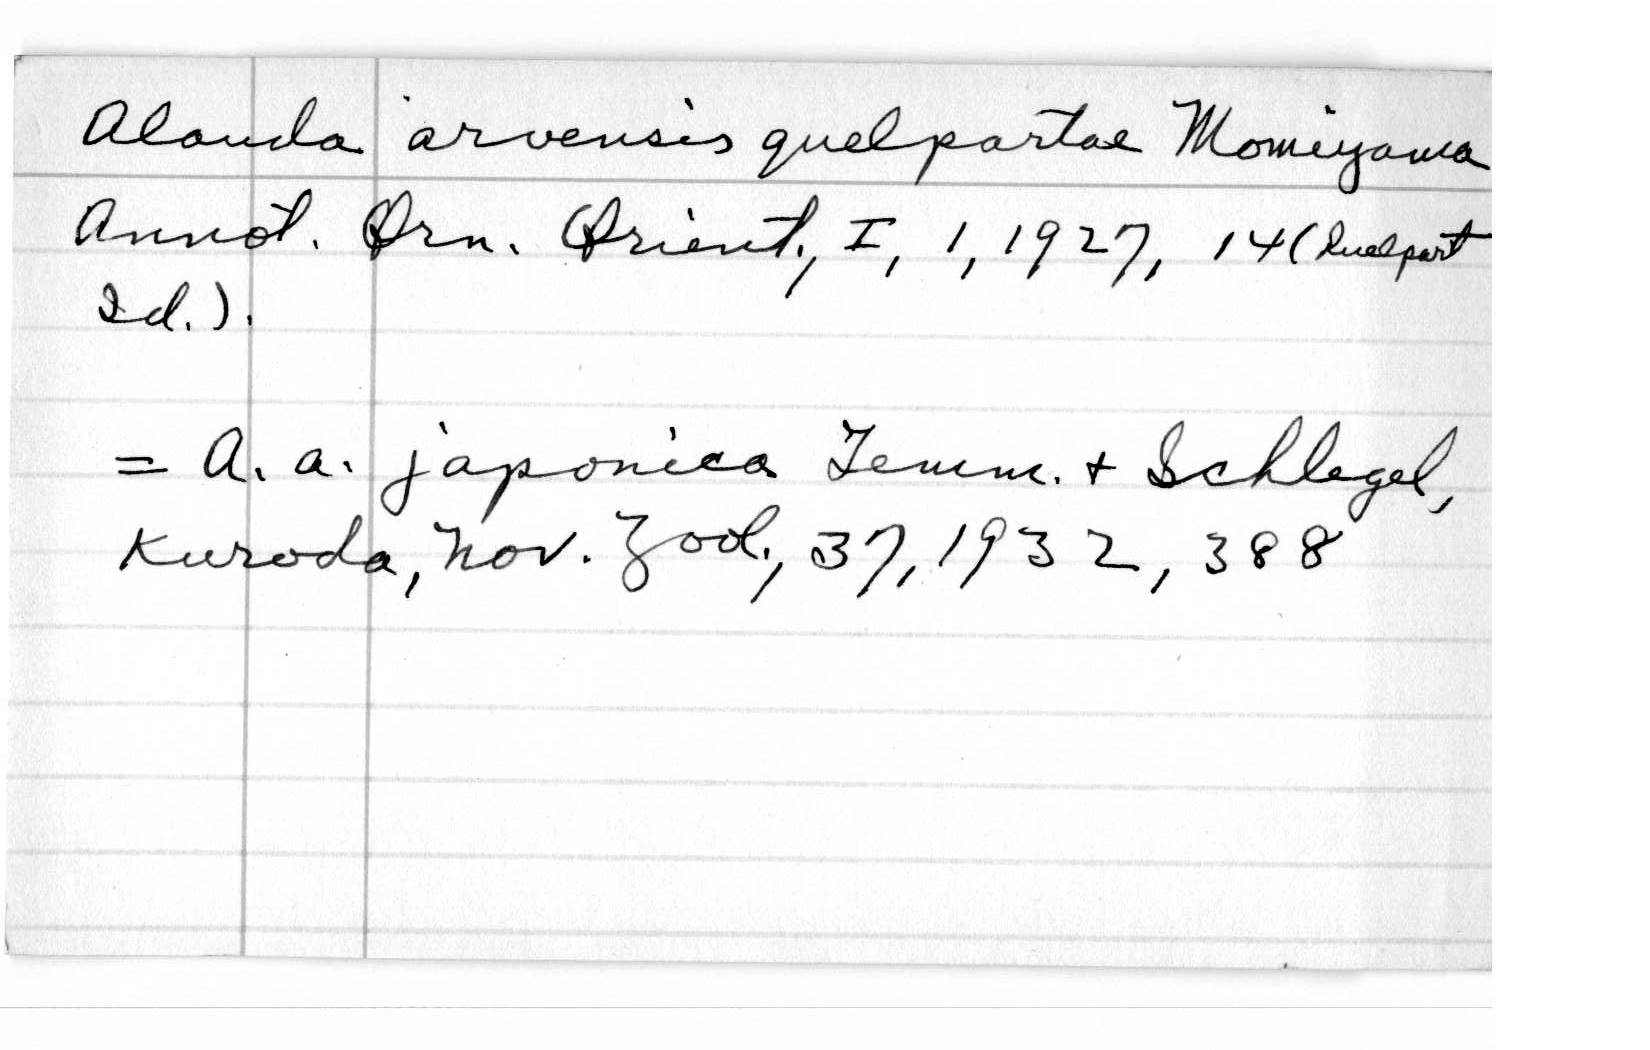 Alauda arvensis quelpartae Momiyama
Annot. Orn. Orient., I, 1, 1927, 14 (Quelpart
Id.).
= A. a. japonica Temm. + Schlegel,
Kuroda, Nov. Zool., 37, 1932, 388